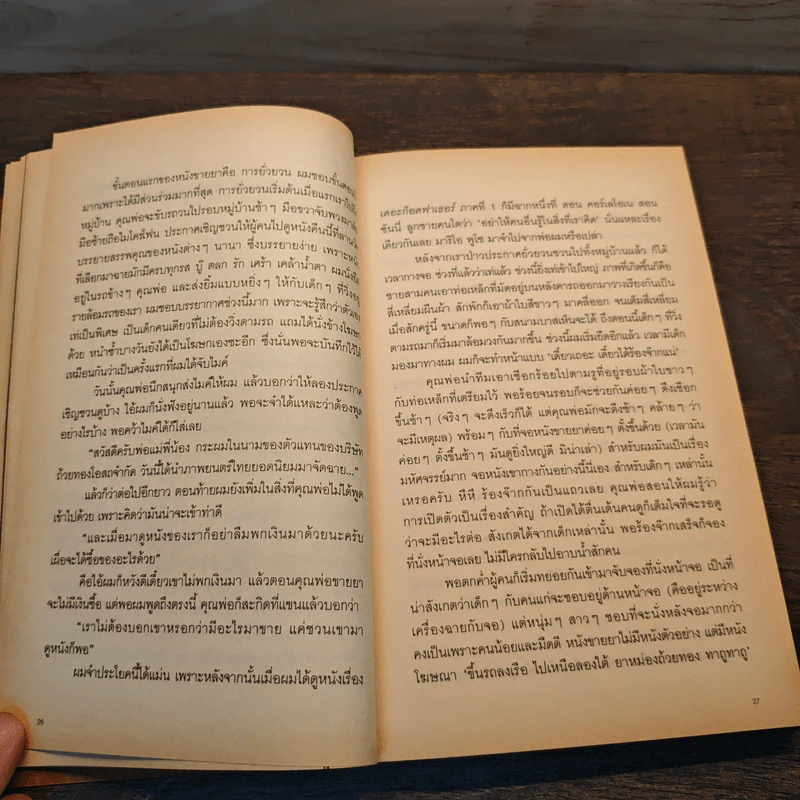 ขั้นตอนแรกของหนังขายยาคือ การยั่วยวน ผมชอบขั้นตอนนี้
มากเพราะได้มีส่วนร่วมมากที่สุด การยั่วยวนเริ่มต้นเมื่อแรกเราไปถึง
หมู่บ้าน คุณพ่อจะขับรถวนไปรอบหมู่บ้านช้าๆ มือขวาจับพวงมาลัย
มือซ้ายถือไมโครโฟน ประกาศเชิญชวนให้ผู้คนไปดูหนังคืนนี้ที่ลานวัด
บรรยายสรรพคุณของหนังต่างๆ นานา ซึ่งบรรยายง่าย เพราะหนัง
ที่เลือกมาฉายมักมีครบทุกรส บู๊ ตลก รัก เศร้า เคล้าน้ำตา ผมนั่ง
อยู่ในรถข้างๆ คุณพ่อ และส่งยิ้มแบบหยิ่งๆ ให้กับเด็กๆ ที่วิ่งอยู่
รายล้อมรถของเรา ผมชอบบรรยากาศช่วงนี้มาก เพราะจะรู้สึกว่าตัวเอง
เท่เป็นพิเศษ เป็นเด็กคนเดียวที่ไม่ต้องวิ่งตามรถ แถมได้นั่งข้างโฆษก
ด้วย หนำซ้ำบางวันยังได้เป็นโฆษกเองซะอีก ซึ่งนั่นพอจะบันทึกไว้ได้
เหมือนกันว่าเป็นครั้งแรกที่ผมได้จับไมค์
วันนั้นคุณพ่อนึกสนุกส่งไมค์ให้ผม แล้วบอกว่าให้ลองประกาศ
เชิญชวนดูบ้าง ไอ้ผมก็นั่งฟังอยู่นานแล้ว พอจะจำได้แหละว่าต้องพูด
อย่างไรบ้าง พอคว้าไมค์ได้ก็ใส่เลย
“สวัสดีครับพ่อแม่พี่น้อง กระผมในนามของตัวแทนของบริษัท
ถ้วยทองโอสถจำกัด วันนี้ได้นำภาพยนตร์ไทยยอดนิยมมาจัดฉาย...”
แล้วก็ว่าต่อไปอีกยาว ตอนท้ายผมยังเพิ่มในสิ่งที่คุณพ่อไม่ได้พูด
เข้าไปด้วย เพราะคิดว่ามันน่าจะเข้าท่าดี
“และเมื่อมาดูหนังของเราก็อย่าลืมพกเงินมาด้วยนะครับ
เผื่อจะได้ซื้อของอะไรด้วย”
คือไอ้ผมก็หวังดีเดี๋ยวเขาไม่พกเงินมา แล้วตอนคุณพ่อขายยา
จะไม่มีเงินซื้อ แต่พอผมพูดถึงตรงนี้ คุณพ่อก็สะกิดที่แขนแล้วบอกว่า
“เราไม่ต้องบอกเขาหรอกว่ามีอะไรมาขาย แค่ชวนเขามา
ดูหนังก็พอ”
ผมจำประโยคนี้ได้แม่น เพราะหลังจากนั้นเมื่อผมได้ดูหนังเรื่อง
26
เดอะก็อดฟาเธอร์ ภาคที่ 1 ก็มีฉากหนึ่งที่ ดอน คอร์เลโอเน สอน
ซันนี่ ลูกชายคนโตว่า ‘อย่าให้คนอื่นรู้ในสิ่งที่เราคิด’ นั่นแหละเรื่อง
เดียวกันเลย มาริโอ พูโซ มาจำไปจากพ่อผมหรือเปล่า
หลังจากเราป่าวประกาศยั่วยวนชวนไปทั้งหมู่บ้านแล้ว ก็ได้
เวลากางจอ ช่วงที่แล้วว่าเท่แล้ว ช่วงนี้ยิ่งเท่เข้าไปใหญ่ ภาพที่เกิดขึ้นก็คือ
ชายสามคนเอาท่อเหล็กที่มัดอยู่บนหลังคารถออกมาวางเรียงกันเป็น
สี่เหลี่ยมผืนผ้า สักพักก็เอาผ้าใบสีขาวๆ มาคลี่ออก จนเต็มสี่เหลี่ยม
เมื่อสักครู่นี้ ขนาดก็พอๆ กับสนามบาสเห็นจะได้ ถึงตอนนี้เด็กๆ ที่วิ่ง
ตามรถมาก็เริ่มมาล้อมวงกันมากขึ้น ช่วงนี้ผมเริ่มยืดอีกแล้ว เวลามีเด็ก
มองมาทางผม ผมก็จะทำหน้าแบบ ‘เดี๋ยวเถอะ เดี๋ยวได้ร้องจ๊ากแน่’
คุณพ่อนำทีมเอาเชือกร้อยไปตามรูที่อยู่รอบผ้าใบขาวๆ
กับท่อเหล็กที่เตรียมไว้ พอร้อยจนรอบก็จะช่วยกันค่อยๆ ดึงเชือก
ขึ้นช้าๆ (จริงๆ จะดึงเร็วก็ได้ แต่คุณพ่อมักจะดึงช้าๆ คล้ายๆ ว่า
จะมีเหตุผล) พร้อมๆ กับที่จอหนังขายยาค่อยๆ ตั้งขึ้นด้วย (เวลามัน
ค่อยๆ ตั้งขึ้นช้าๆ มันดูยิ่งใหญ่ดี มิน่าเล่า) สำหรับผมมันเป็นเรื่อง
มหัศจรรย์มาก จอหนังเขากางกันอย่างนี้นี่เอง สำหรับเด็กๆ เหล่านั้น
เหรอครับ หึหึ ร้องจ๊ากกันเป็นแถวเลย คุณพ่อสอนให้ผมรู้ว่า
การเปิดตัวเป็นเรื่องสำคัญ ถ้าเปิดได้ตื่นเต้นคนดูก็เต็มใจที่จะรอดู
ว่าจะมีอะไรต่อ สังเกตได้จากเด็กเหล่านั้น พอร้องจ๊ากเสร็จก็จอง
ที่นั่งหน้าจอเลย ไม่มีใครกลับไปอาบน้ำสักคน
พอตกค่ำผู้คนก็เริ่มทยอยกันเข้ามาจับจองที่นั่งหน้าจอ เป็นที่
น่าสังเกตว่าเด็กๆ กับคนแก่จะชอบอยู่ด้านหน้าจอ (คืออยู่ระหว่าง
เครื่องฉายกับจอ) แต่หนุ่มๆ สาวๆ ชอบที่จะนั่งหลังจอมากกว่า
คงเป็นเพราะคนน้อยและมืดดี หนังขายยาไม่มีหนังตัวอย่าง แต่มีหนัง
โฆษณา ‘ขึ้นรถลงเรือ ไปเหนือลองใต้ ยาหม่องถ้วยทอง ทาถูทาถู’
27